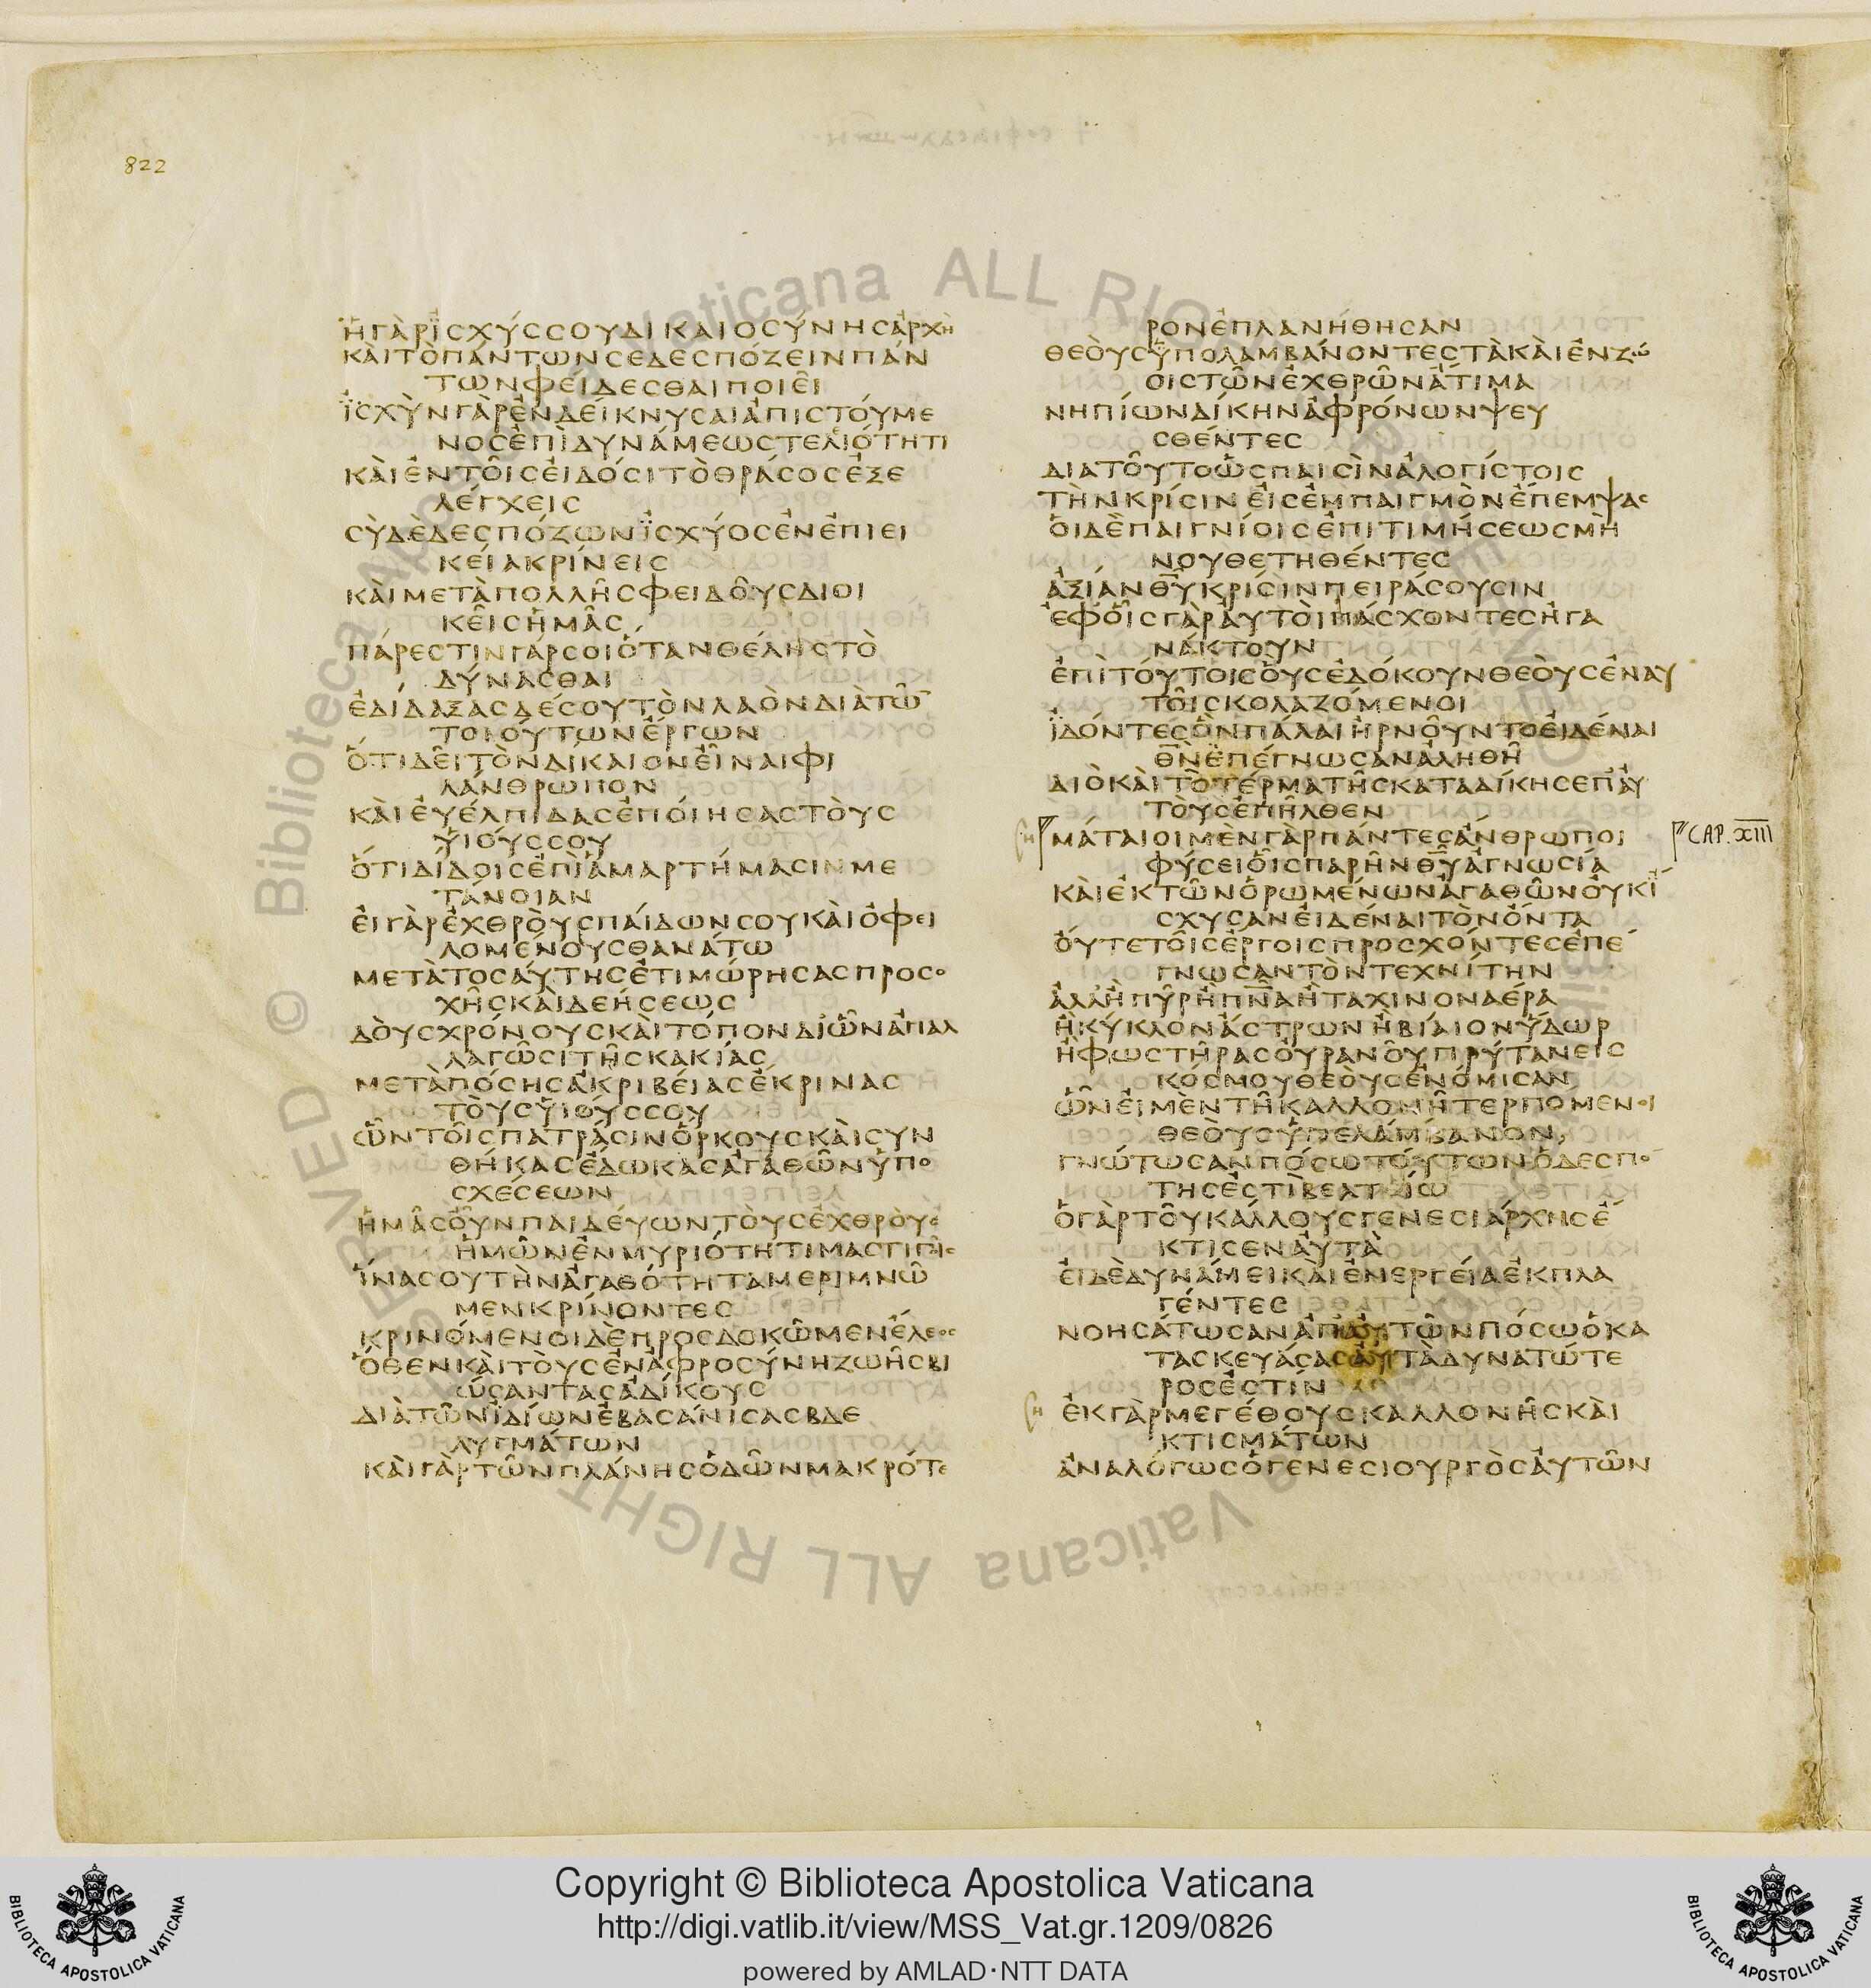 822
ἩΓᾺΡΪ́ΣΧΎΣΣΟΥΔΙΚΑΙΟΣΎΝΗΣἈΡΧῊ
ΚΑῚΤῸΠΆΝΤΩΝΣΕΔΕΣΠΌΖΕΙΝΠΆΝ
ΤΩΝΦΕΊΔΕΣΘΑΙΠΟΙΕῖ
ΪΣΧῪΝΓᾺΡἘΝΔΕΊΚΝΥΣΑΙἈΠΙΣΤΟΎΜΕ
ΝΟΣἘΠῚΔΥΝΆΜΕΩΣΤΕΛΙΌΤΗΤΙ
ΚΑῚἘΝΤΟῖΣΕἸΔΌΣΙΤῸΘΡΆΣΟΣἘΞΕ
ΛΈΓΧΕΙΣ
ΣῪΔῈΔΕΣΠΌΖΩΝΪΣΧΎΟΣἘΝἘΠΙΕΙ
ΚΕΊΑΚΡΊΝΕΙΣ
ΚΑῚΜΕΤᾺΠΟΛΛῆΣΦΕΙΔΟῦΣΔΙΟΙ
ΚΕῖΣἩΜᾶΣ
ΠΆΡΕΣΤΙΝΓΆΡΣΟΙὍΤΑΝΘΈΛΗΣΤῸ
ΔΎΝΑΣΘΑΙ
ἘΔΊΔΑΞΑΣΔΈΣΟΥΤῸΝΛΑῸΝΔΙᾺΤῶ̄
ΤΟΙΟΎΤΩΝἜΡΓΩΝ
ὍΤΙΔΕῖΤῸΝΔΊΚΑΙΟΝΕἾΝΑΙΦΙ
ΛΆΝΘΡΩΠΟΝ
ΚΑῚΕΥΈΛΠΙΔΑΣἘΠΟΊΗΣΑΣΤΟῪΣ
ΥἹΟΎΣΣΟΥ
ὍΤΙΔΊΔΟΙΣἘΠῚἉΜΑΡΤΉΜΑΣΙΝΜΕ
ΤΆΝΟΙΑΝ
ΕἸΓᾺΡἘΧΘΡΟῪΣΠΑΊΔΩΝΣΟΥΚΑῚὈΦΕΙ
ΛΟΜΈΝΟΥΣΘΑΝΆΤΩ
ΜΕΤᾺΤΟΣΑΎΤΗΣἘΤΙΜΩΡΉΣΑΣΠΡΟΣΟ
ΧῆΣΚΑῚΔΕΉΣΕΩΣ
ΔΟῪΣΧΡΌΝΟΥΣΚΑῚΤΌΠΟΝΔΙὯΝἈΠΑΛ
ΛΑΓῶΣΙΤῆΣΚΑΚΊΑΣ
ΜΕΤᾺΠΌΣΗΣἈΚΡΙΒΕΊΑΣἜΚΡΙΝΑΣ
ΤΟῪΣΥἹΟΎΣΣΟΥ
ὯΝΤΟῖΣΠΑΤΡΆΣΙΝὍΡΚΟΥΣΚΑῚΣΥΝ
ΘΉΚΑΣἜΔΩΚΑΣἈΓΑΘῶΝὙΠΟ
ΣΧΈΣΕΩΝ
ἩΜᾶΣΟὖΝΠΑΙΔΕΎΩΝΤΟῪΣἘΧΘΡΟῪΣ
ἩΜῶΝἘΝΜΥΡΙΌΤΗΤΙΜΑΣΤΙΓΟῖΣ
ἽΝΑΣΟΥΤῊΝἈΓΑΘΌΤΗΤΑΜΕΡΙΜΝῶ
ΜΕΝΚΡΊΝΟΝΤΕΣ
ΚΡΙΝΌΜΕΝΟΙΔῈΠΡΟΣΔΟΚῶΜΕΝἜΛΕΟΣ
ὍΘΕΝΚΑῚΤΟῪΣἘΝἈΦΡΟΣΎΝΗΖΩῆΣΒΙ
ΏΣΑΝΤΑΣἈΔΊΚΟΥΣ
ΔΙᾺΤῶΝἸΔΊΩΝἘΒΑΣΆΝΙΣΑΣΒΔΕ
ΛΥΓΜΆΤΩΝ
ΚΑῚΓᾺΡΤῶΝΠΛΆΝΗΣὉΔῶΝΜΑΚΡΌΤΕ
ΡΟΝἘΠΛΑΝΉΘΗΣΑΝ
ΘΕΟῪΣὙΠΟΛΑΜΒΆΝΟΝΤΕΣΤᾺΚΑῚἘΝΖΏ
ΟΙΣΤῶΝἘΧΘΡῶΝἌΤΙΜΑ
ΝΗΠΊΩΝΔΊΚΗΝἈΦΡΌΝΩΝΨΕΥ
ΣΘΈΝΤΕΣ
ΔΙΑΤΟῦΤΟὩΣΠΑΙΣῚΝἈΛΟΓΊΣΤΟΙΣ
ΤῊΝΚΡΊΣΙΝΕἸΣἘΜΠΑΙΓΜῸΝἜΠΕΜΨΑΣ
ΟἹΔῈΠΑΙΓΝΊΟΙΣἘΠΙΤΙΜΉΣΕΩΣΜῊ
ΝΟΥΘΕΤΗΘΈΝΤΕΣ
ἈΞΊΑΝΘ̅Υ̅ΚΡΊΣΙΝΠΕΙΡΆΣΟΥΣΙΝ
ἘΦΟἿΣΓᾺΡΑΥΤΟῚΠΆΣΧΟΝΤΕΣἨΓΑ
ΝΆΚΤΟΥΝ
ἘΠῚΤΟΎΤΟΙΣΟὛΣἘΔΌΚΟΥΝΘΕΟῪΣἘΝΑΥ
ΤΟῖΣΚΟΛΑΖΌΜΕΝΟΙ
ΪΔΌΝΤΕΣὋΝΠΆΛΑΙἨΡΝΟῦΝΤΟΕἸΔΈΝΑΙ
Θ̅Ν̅ἘΠΈΓΝΩΣΑΝἈΛΗΘῆ
ΔΙῸΚΑῚΤῸΤΈΡΜΑΤῆΣΚΑΤΑΔΊΚΗΣΕΠΑΥ
ΤΟῪΣἘΠῆΛΘΕΝ
ΜΆΤΑΙΟΙΜῈΝΓᾺΡΠΆΝΤΕΣἌΝΘΡΩΠΟΙ CAP. XIII
ΦΎΣΕΙΟἿΣΠΑΡῆΝΘ̅Υ̅ἈΓΝΩΣΊΑ
ΚΑῚἘΚΤῶΝὉΡΩΜΈΝΩΝἈΓΑΘῶΝΟΥΚΪ
ΣΧΥΣΑΝΕἸΔΈΝΑΙΤῸΝὌΝΤΑ
ΟὔΤΕΤΟῖΣἜΡΓΟΙΣΠΡΟΣΧΌΝΤΕΣἘΠΕ
ΓΝΩΣΑΝΤῸΝΤΕΧΝΊΤΗΝ
ἈΛΛἪΠῦΡἪΠ̅Ν̅Α̅ἪΤΑΧΙΝΟΝΑΈΡΑ
ἪΚΎΚΛΟΝἌΣΤΡΩΝἪΒΊΑΙΟΝὝΔΩΡ
ἪΦΩΣΤῆΡΑΣΟΥΡΑΝΟῦΠΡΥΤΆΝΕΙΣ
ΚΌΣΜΟΥΘΕΟῪΣἘΝΌΜΙΣΑΝ
ὯΝΕἸΜῈΝΤῆΚΑΛΛΟΝῆΤΕΡΠΟΜΕΝΟΙ
ΘΕΟῪΣὙΠΕΛΆΜΒΑΝΟΝ
ΓΝΏΤΩΣΑΝΠΌΣΩΤΟΎΤΩΝὉΔΕΣΠΟ
ΤΗΣἘΣΤῚΒΕΛΤΊΩ
ὉΓᾺΡΤΟῦΚΆΛΛΟΥΣΓΕΝΕΣΙΆΡΧΗΣἜ
ΚΤΙΣΕΝΑΥΤᾺ
ΕἸΔῈΔΥΝΆΜΕΙΚΑῚἘΝΕΡΓΕΊΑἘΚΠΛΑ
ΓΈΝΤΕΣ
ΝΟΗΣΆΤΩΣΑΝἈΠΑΥΤῶΝΠΌΣΩὉΚΑ
ΤΑΣΚΕΥΆΣΑΣΑΥΤᾺΔΥΝΑΤΏΤΕ
ΡΟΣἘΣΤΊΝ
ἘΚΓᾺΡΜΕΓΈΘΟΥΣΚΑΛΛΟΝῆΣΚΑῚ
ΚΤΙΣΜΆΤΩΝ
ἈΝΑΛΌΓΩΣὉΓΕΝΕΣΙΟΥΡΓῸΣΑΥΤῶΝ
Copyright © Biblioteca Apostolica Vaticana
http://digi.vatlib.it/view/MSS_Vat.gr.1209/0826
powered by AMLAD·NTT DATA
BIBLIOTECA APOSTOLICA VATICANA
BIBLIOTECA APOSTOLICA VATICANA